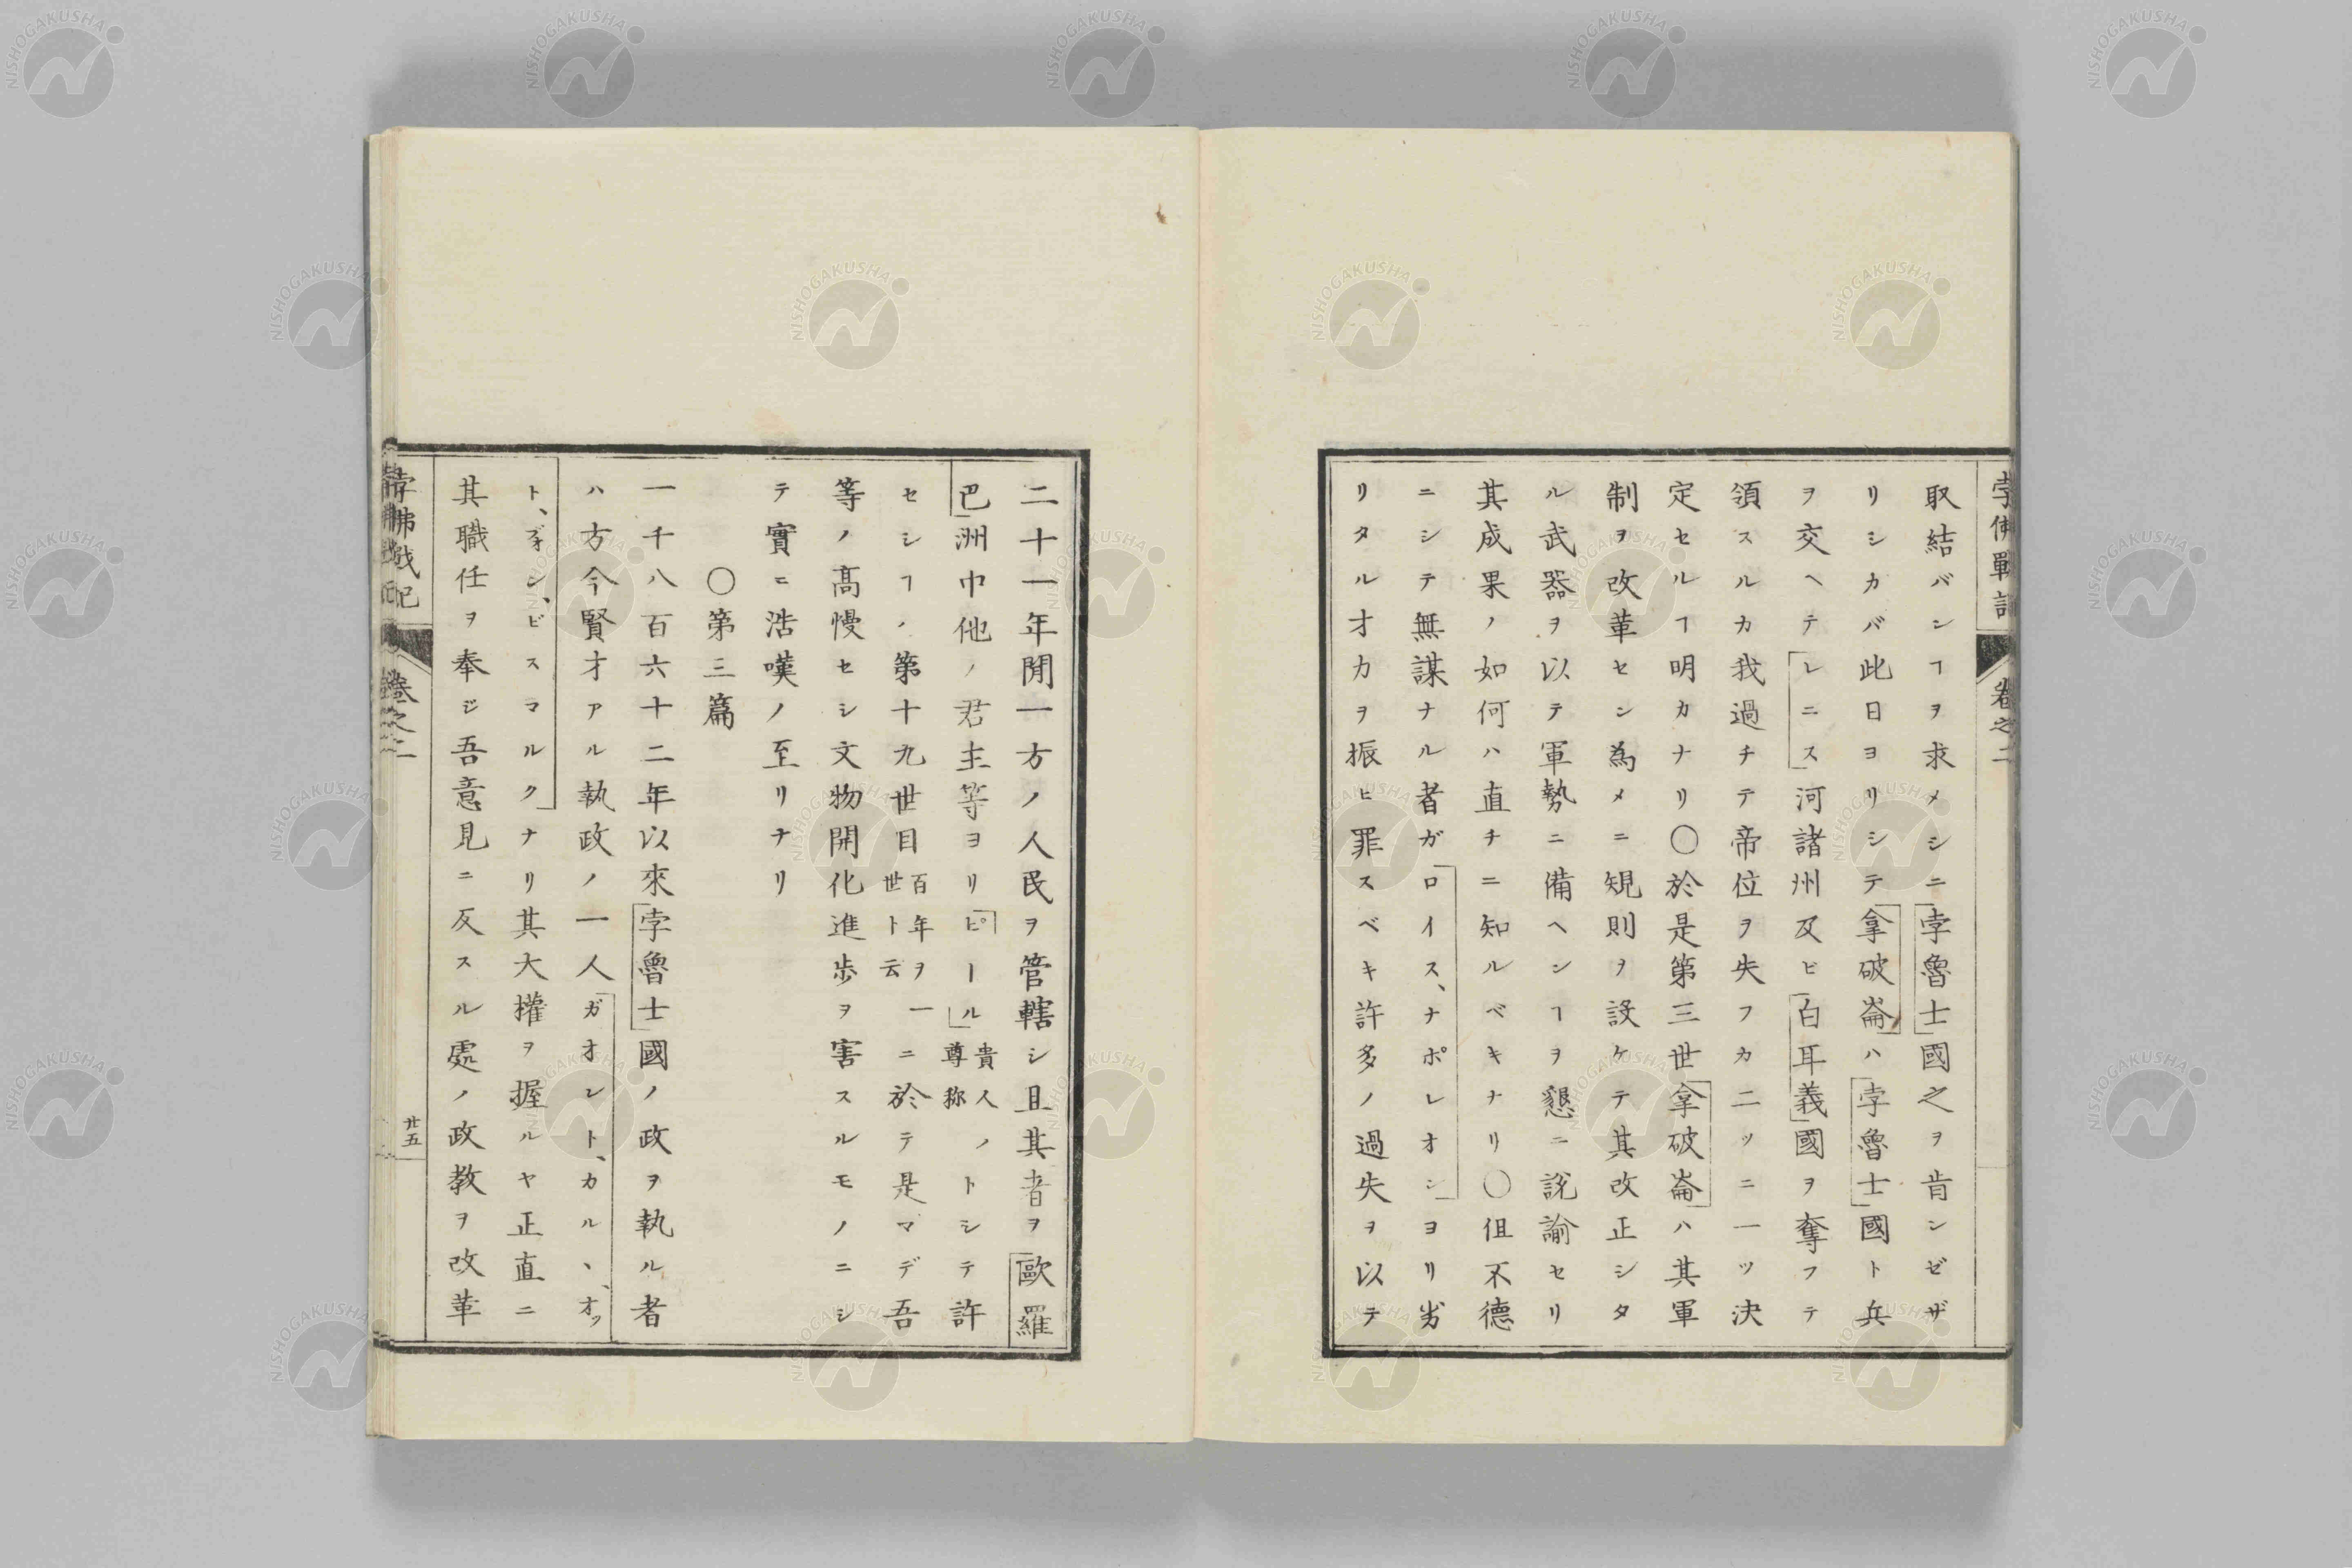 孛佛戰記 卷之二
取結バンヿヲ求メシニ孛魯士國之ヲ肯ンゼザ
リシカバ此日ヨリシテ拿破崙ハ孛魯士國ト兵
ヲ交ヘテレニス河諸州及ビ白耳義國ヲ奪フテ
領スルカ我過チテ帝位ヲ失フカ二ッニ一ッ決
定セルヿ明カナリ〇於是第三世拿破崙ハ其軍
制ヲ改革セン為メニ規則ヲ設ケテ其改正シタ
ル武器ヲ以テ軍勢ニ備ヘンヿヲ懇ニ說諭セリ
其成果ノ如何ハ直チニ知ルベキナリ〇伹不德
ニシテ無謀ナル者ガロイス、ナポレオンヨリ劣
リタル才カヲ振ヒ罪スベキ許多ノ過失ヲ以テ
二十一年間一方ノ人民ヲ管轄シ且其者ヲ歐羅
巴洲中他ノ君主等ヨリピール貴人ノ尊称ノトシテ許
セシヿノ第十九世目百年ヲ一世ト云ニ於テ是マデ吾
等ノ高慢セシ文物開化進歩ヲ害スルモノニシ
テ實ニ浩嘆ノ至リナリ
〇第三篇
一千八百六十二年以來孛魯士國ノ政ヲ執ル者
ハ方今賢才アル執政ノ一人ガオント、カル、オッ
ト、ヲン、ビスマルクナリ其大權ヲ握ルヤ正直ニ
其職任ヲ奉ジ吾意見ニ反スル處ノ政教ヲ改革
孛佛戰記 卷之二 廿五